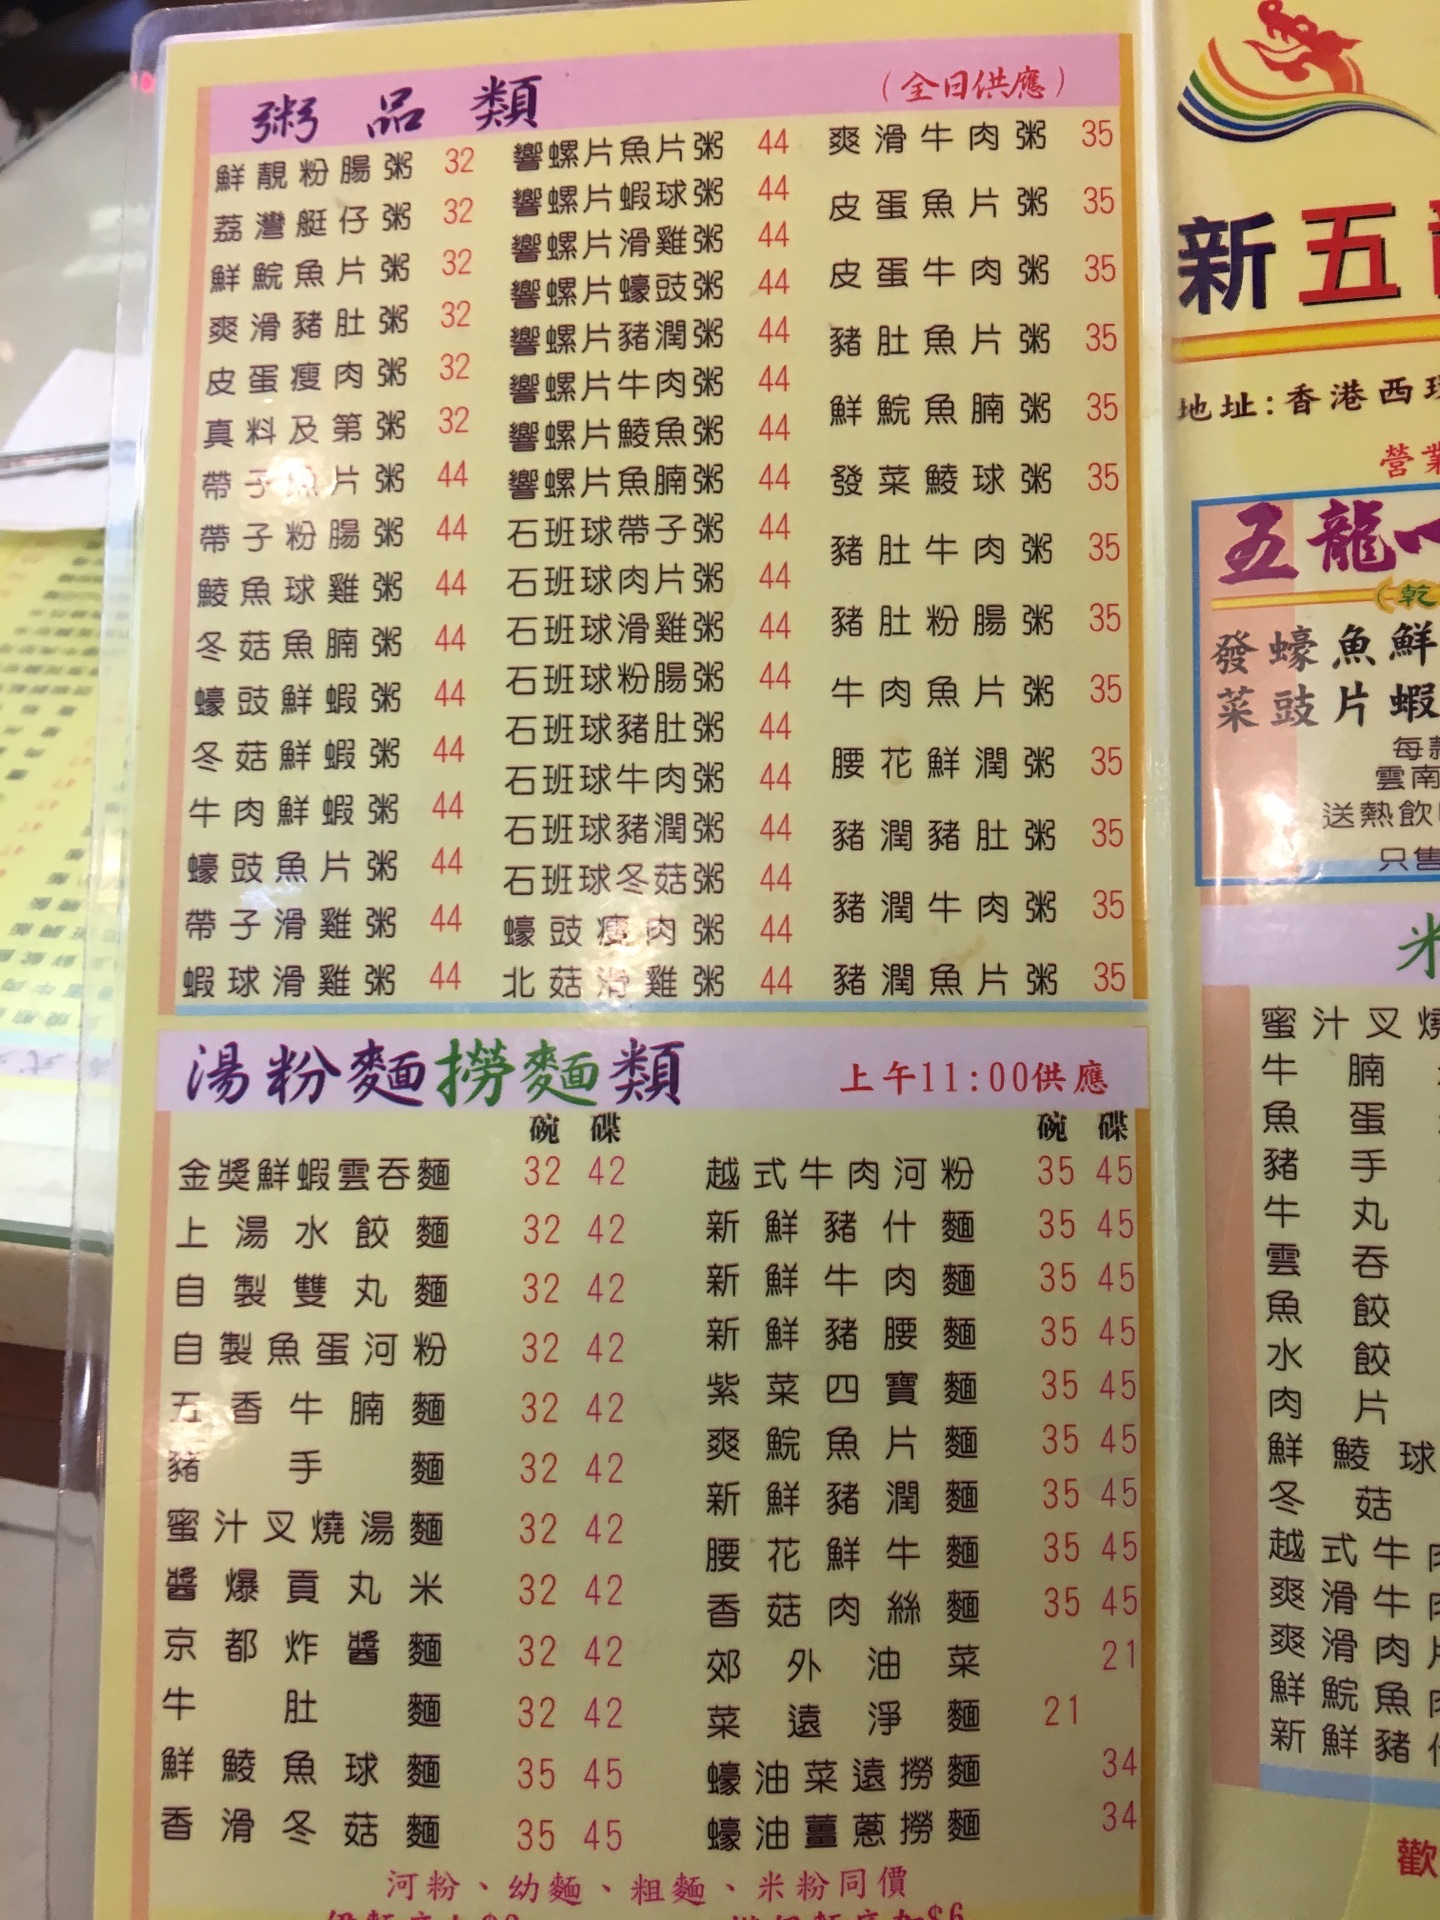 粥品類 (全日供應)
鮮靚粉腸粥 32
荔灣艇仔粥 32
鮮鯇魚片粥 32
爽滑豬肚粥 32
皮蛋瘦肉粥 32
真料及第粥 32
帶子魚片粥 44
帶子粉腸粥 44
鯪魚球雞粥 44
冬菇魚腩粥 44
蠔豉鮮蝦粥 44
冬菇鮮蝦粥 44
牛肉鮮蝦粥 44
蠔豉魚片粥 44
帶子滑雞粥 44
蝦球滑雞粥 44
響螺片魚片粥 44
響螺片蝦球粥 44
響螺片滑雞粥 44
響螺片蠔豉粥 44
響螺片豬潤粥 44
響螺片牛肉粥 44
響螺片鯪魚粥 44
響螺片魚腩粥 44
石班球帶子粥 44
石班球肉片粥 44
石班球滑雞粥 44
石班球粉腸粥 44
石班球豬肚粥 44
石班球牛肉粥 44
石班球豬潤粥 44
石班球冬菇粥 44
蠔豉瘦肉粥 44
北菇滑雞粥 44
爽滑牛肉粥 35
皮蛋魚片粥 35
皮蛋牛肉粥 35
豬肚魚片粥 35
鮮鯇魚腩粥 35
發菜鯪球粥 35
豬肚牛肉粥 35
豬肚粉腸粥 35
牛肉魚片粥 35
腰花鮮潤粥 35
豬潤豬肚粥 35
豬潤牛肉粥 35
豬潤魚片粥 35
湯粉麵撈麵類 上午11:00供應
碗 碟
金獎鮮蝦雲吞麵 32 42
上湯水餃麵 32 42
自製雙丸麵 32 42
自製魚蛋河粉 32 42
五香牛腩麵 32 42
豬手麵 32 42
蜜汁叉燒湯麵 32 42
醬爆貢丸米 32 42
京都炸醬麵 32 42
牛肚麵 32 42
鮮鯪魚球麵 35 45
香滑冬菇麵 35 45
碗 碟
越式牛肉河粉 35 45
新鮮豬什麵 35 45
新鮮牛肉麵 35 45
新鮮豬腰麵 35 45
紫菜四寶麵 35 45
爽鯇魚片麵 35 45
新鮮豬潤麵 35 45
腰花鮮牛麵 35 45
香菇肉絲麵 35 45
郊外油菜 21
菜遠淨麵 21
蠔油菜遠撈麵 34
蠔油薑蔥撈麵 34
河粉、幼麵、粗麵、米粉同價
新五
地址:香港西環
營業
五龍
乾
發 蠔 魚 鮮
菜 豉 片 蝦
每款
雲南
送熱飲
只售
米
蜜汁叉燒
牛腩
魚蛋
豬手
牛丸
雲吞
魚餃
水餃
肉片
鮮鯪球
冬菇
越式牛肉
爽滑牛肉
爽滑肉片
鮮鯇魚
新鮮豬什
歡